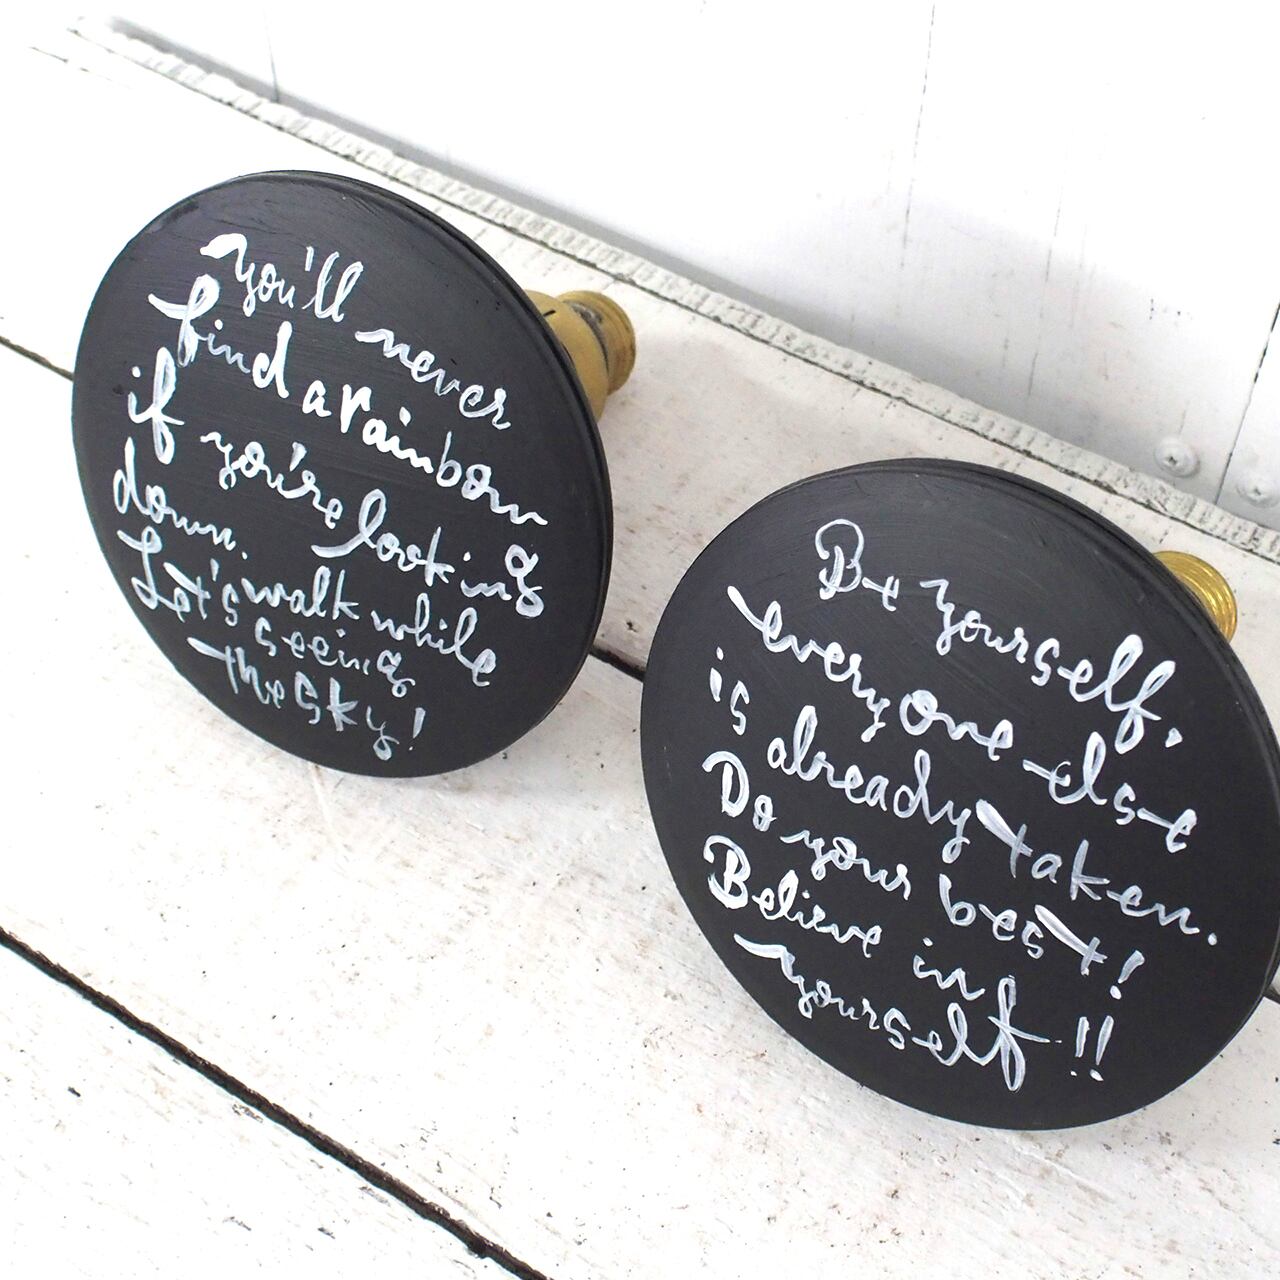 you'll never
find a rainbow
if you're looking
down.
Let's walk while
seeing
the sky!
Be yourself,
everyone else
is already taken.
Do your best!
Believe in
yourself!!